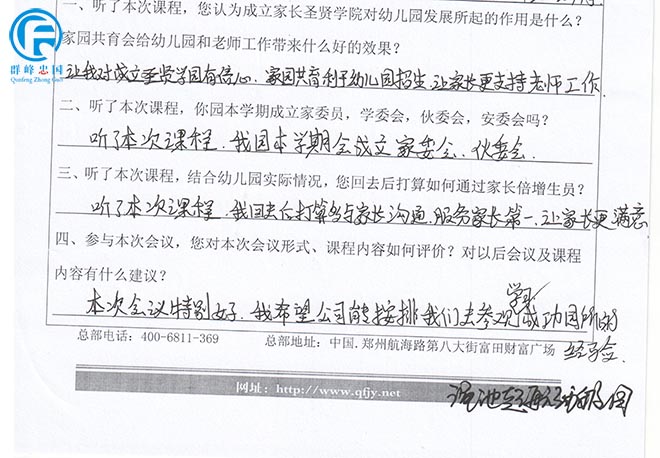 一、听了本次课程，您认为成立家长圣贤学院对幼儿园发展所起的作用是什么？
群峰忠国
Qunfeng Zhong Guo
家园共育会给幼儿园和老师工作带来什么好的效果？
让我对成立圣贤学园有信心，家园共育利于幼儿园招生，让家长更支持老师工作
二、听了本次课程，你园本学期成立家委员，学委会，伙委会，安委会吗？
听了本次课程，我园本学期会成立家委会、伙委会．
三、听了本次课程，结合幼儿园实际情况，您回去后打算如何通过家长倍增生员？
听了本次课程，我回去后打算多与家长沟通，服务家长第一，让家长更满意
四、参与本次会议，您对本次会议形式、课程内容如何评价？对以后会议及课程
内容有什么建议？
学习
本次会议特别好，我希望公司能按排我们去参观成功园所的
经验．
总部电话：400-6811-369 总部地址：中国.郑州航海路第八大街富田财富广场
网址：http://www.qfjy.net